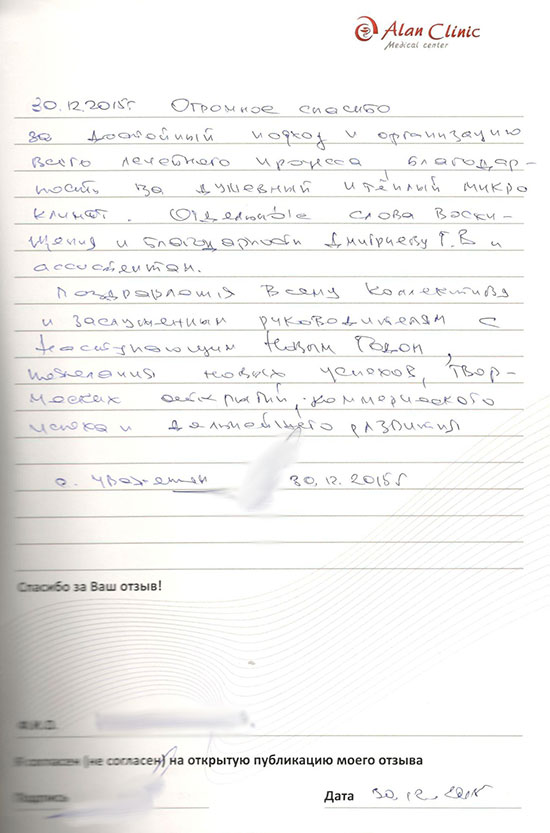 Alan Clinic
Medical center
30.12.2015г Огромное спасибо
за достойный подход и организацию
всего лечебного процесса, благодар-
ность за душевный и тёплый микро
климат. Отдельные слова восхи-
щения и благодарности Дмитриеву Г.В и
ассистентам.
Поздравления всему коллективу
и заслуженным руководителям с
Наступающим Новым Годом,
пожелания новых успехов, твор-
ческих открытий, коммерческого
успеха и дальнейшего развития
с уважением 30.12.2015г
Спасибо за Ваш отзыв!
Ф.И.О.
Я согласен (не согласен) на открытую публикацию моего отзыва
Подпись Дата 30.12.2015